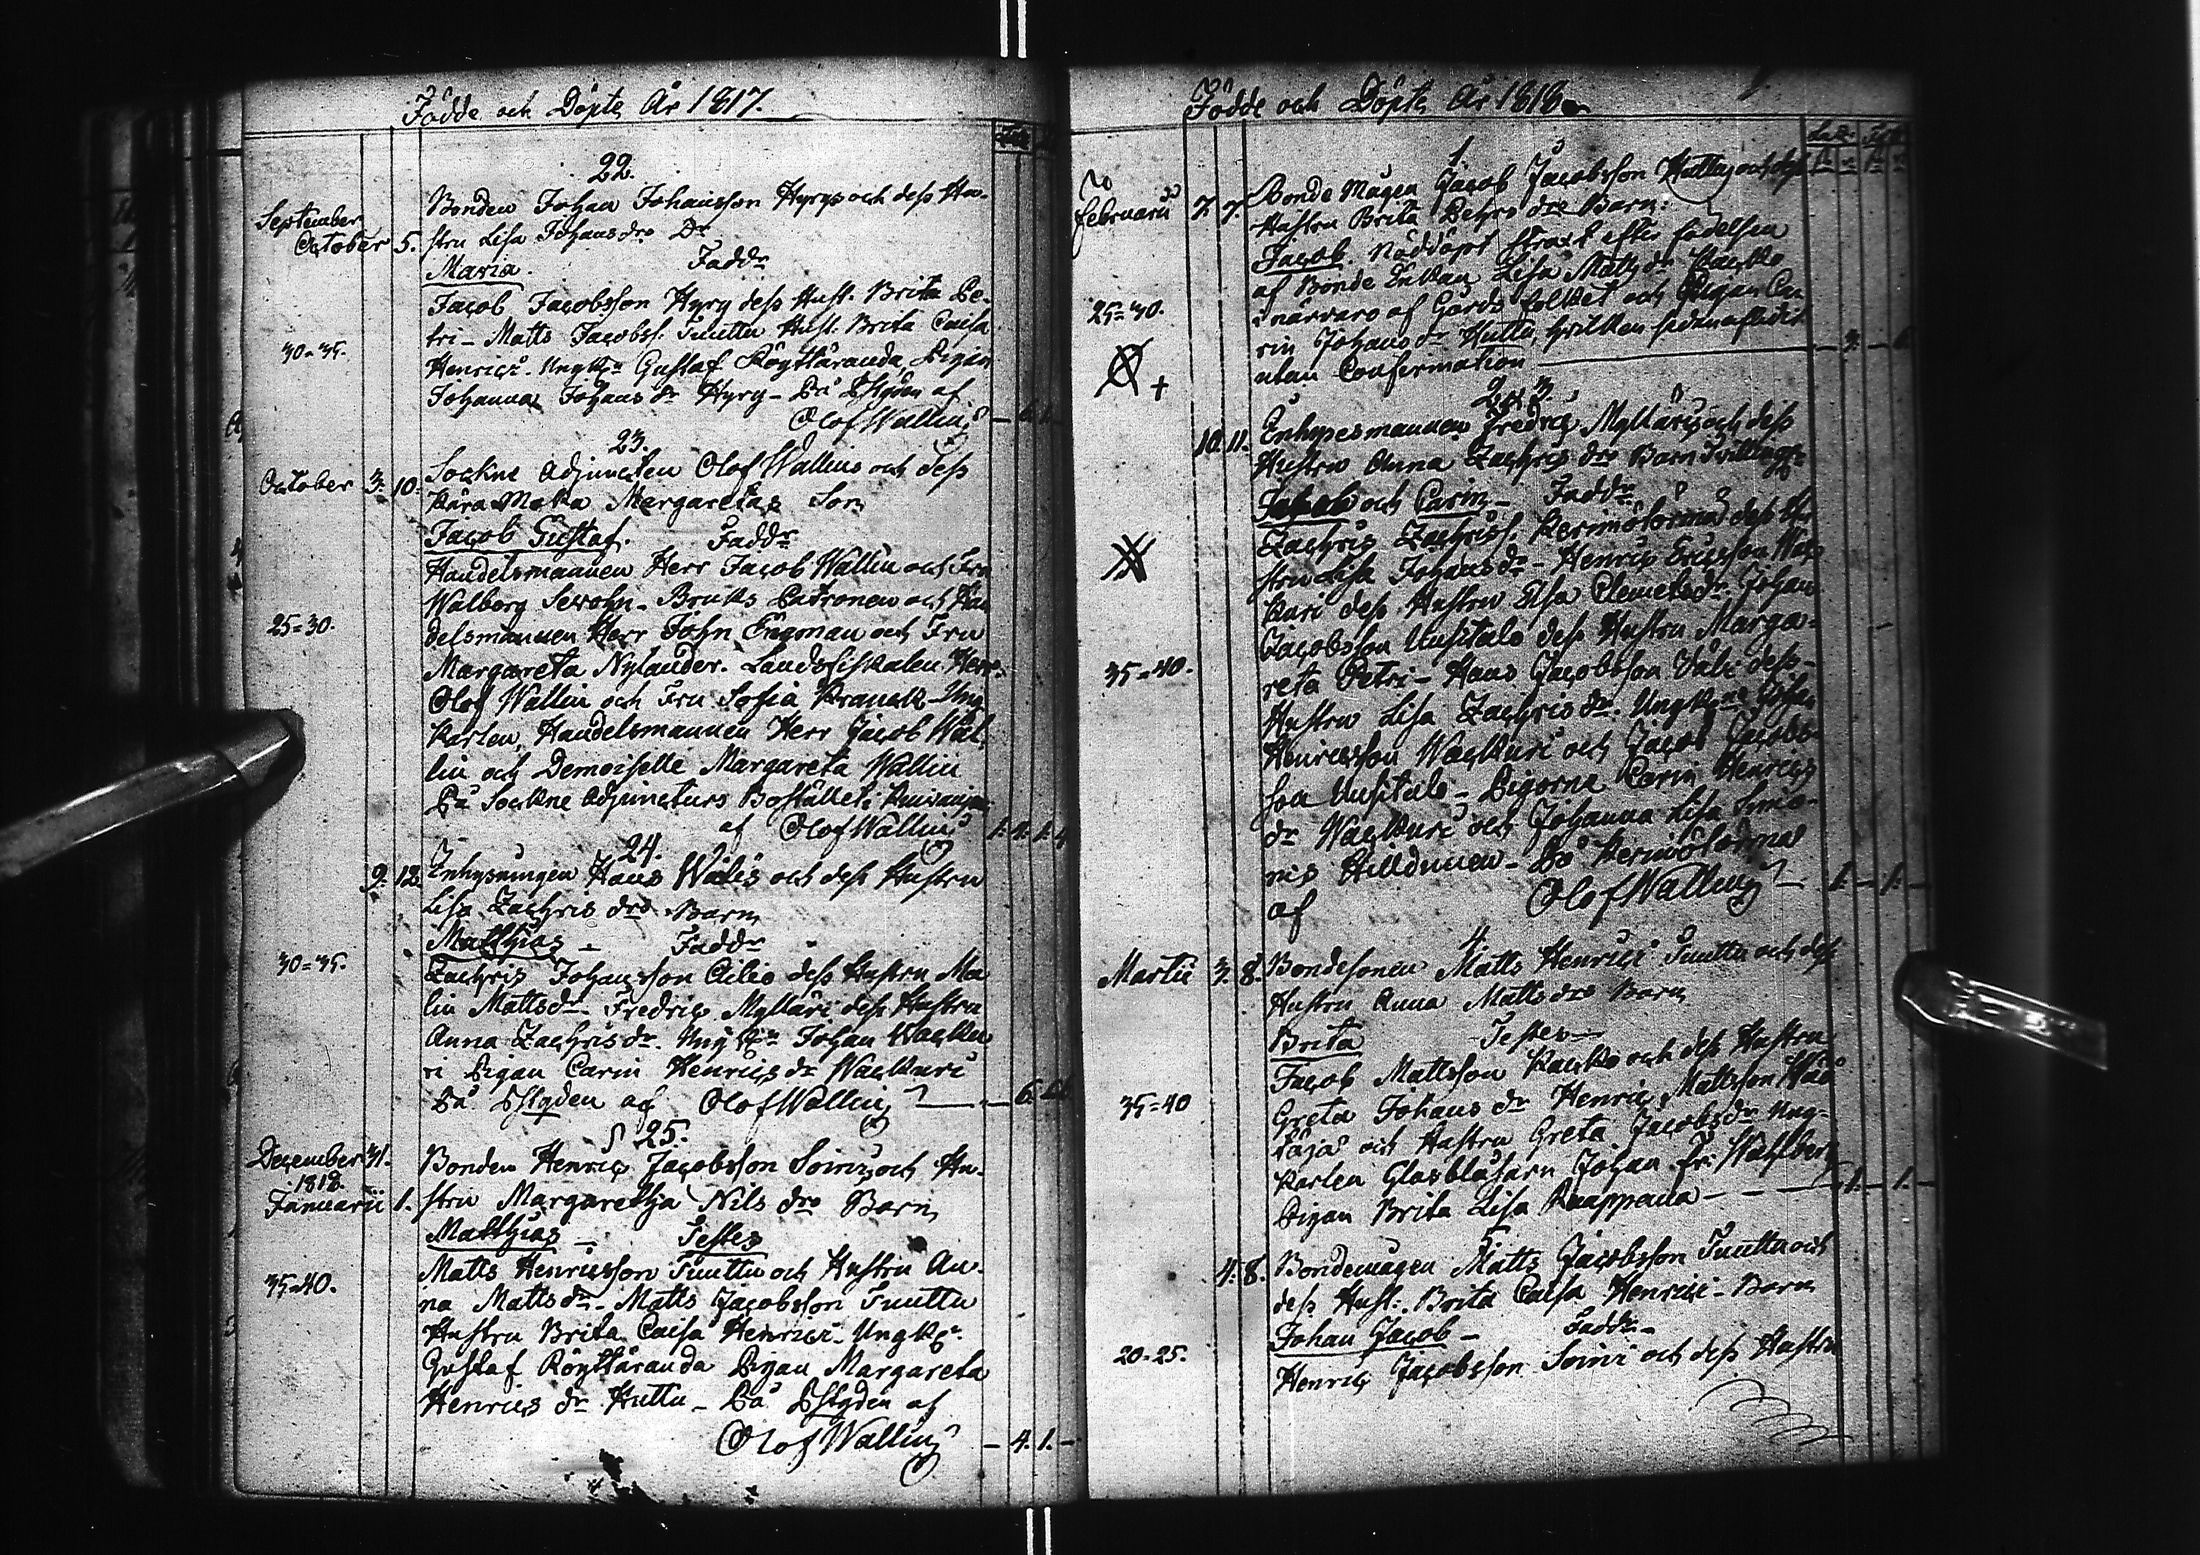 Födde och Döpte År 1817.
22.
Bonden Johan Johansson Hyrys och dess Hu-
September
October 5. stru Lisa Johans drs Dr
Maria. Faddr
Jacob Jacobsson Hyry dess Hust. Brita Pe-
tri - Matts Jacobss. Tuuttu Hust. Brita Caisa
30-35.
Henrici. Ungkn Gustaf Röyttäranda, Pigan
Johanna Johans dr Hyry - På Pstgden af
Olof Wallin
23.
October 3. 10. Sockne Adjuncten Olof Wallins och dess
kära Maka Margaretas Son
Jacob Gustaf. Faddr
Handelsmannen Herr Jacob Wallin och Fru
Walborg - Bruks Patronen och Han
25=30.
delsmannen Herr John Engman och Fru
Margareta Nylander. Landsfiskalen Herr
Olof Wallin och Fru Sofia Kranck - Ung
Karlen, Handelsmannen Herr Jacob Wal
lin och Demoiselle Margareta Wallin
På Sockne Adjuncturs Bostället
af Olof Wallin 1. 4. 1. 4
24.
9. 12. Inhysningen Hans Wälis och dess Hustru
Lisa Zachris drs Barn
Matthias - Faddr
30=35.
Zachris Johansson dess Hustru Ma
lin Mattsdr - Fredric Mylläri dess Hustru
Anna Zachrisdr. Ungkn Johan Wackku
ri Pigan Carin Henrics dr Wackkuri
På Pstgden af Olof Wallin
25.
December 31.
1818.
Bonden Henric Jacobsson Soinis och Hu-
Januarii 1. stru Margaretha Nils drs Barn
Matthias - Testes
Matts Henricsson Tuuttu och Hustru An-
35=40.
na Mattsdr - Matts Jacobsson Tuuttu
Hustru Brita Caisa Henrici - Ungkn
Gustaf Röyttäranda Pigan Margareta
Henrics dr Huttu - På Pstgden af
Olof Wallin - 4. 1. -
Födde och Döpte År 1818
1.
Februarii 7. 7. Bonde Mågen Jacob Jacobsson Huttus och dess
Hustru Brita Pehrs drs Barn:
Jacob. Nöddöpt strax efter födelsen
af Bonde Enkan Lisa Matts dr Kackko
25=30.
i närvaro af Gårds folket och Pigan Ca
rin Johans dr Huttu, hvilken sedan afleder
utan Confirmation
2 & 3
10. 11. Enhysesmannen Fredric Mylläris och dess
Hustru Anna Zachris drs Barn Tvillingar
Jacob och Carin - Faddr
Zachris Zachriss. dess Hu
stru Lisa Johansdr - Henric Ericsson Wack
kuri dess Hustru Elsa Clemetsdr. Johan
Jacobsson Uusitalo dess Hustru Marga-
35=40.
reta Petri - Hans Jacobsson Väli dess
Hustru Lisa Zachris dr. Ungkne Johan
Henricsson Wackkuri och Jacob Jacobs-
son Uusitalo - Pigorna Carin Henrics
dr Wackkuri och Johanna Lisa
af Olof Wallin - 1. - 1. -
4.
Martii 3. 8. Bondesonen Matts Henrici Tuuttu och dess
Hustru Anna Matts drs Barn
Brita Testes
Jacob Mattsson Kackko och dess Hustru
35=40
Greta Johans dr Henric Mattsson
och Hustru Greta Jacobsdr Ung-
karlen Glasblåsarn Johan Fr: Wahlberg
Pigan Brita Lisa Knappana - - - 1. - 1. -
5.
4. 8. Bondemågen Matts Jacobsson Tuuttu och
dess Hust: Brita Caisa Henrici - Barn
Johan Jacob - Faddr -
20=25.
Henric Jacobsson Soini och dess Hustru